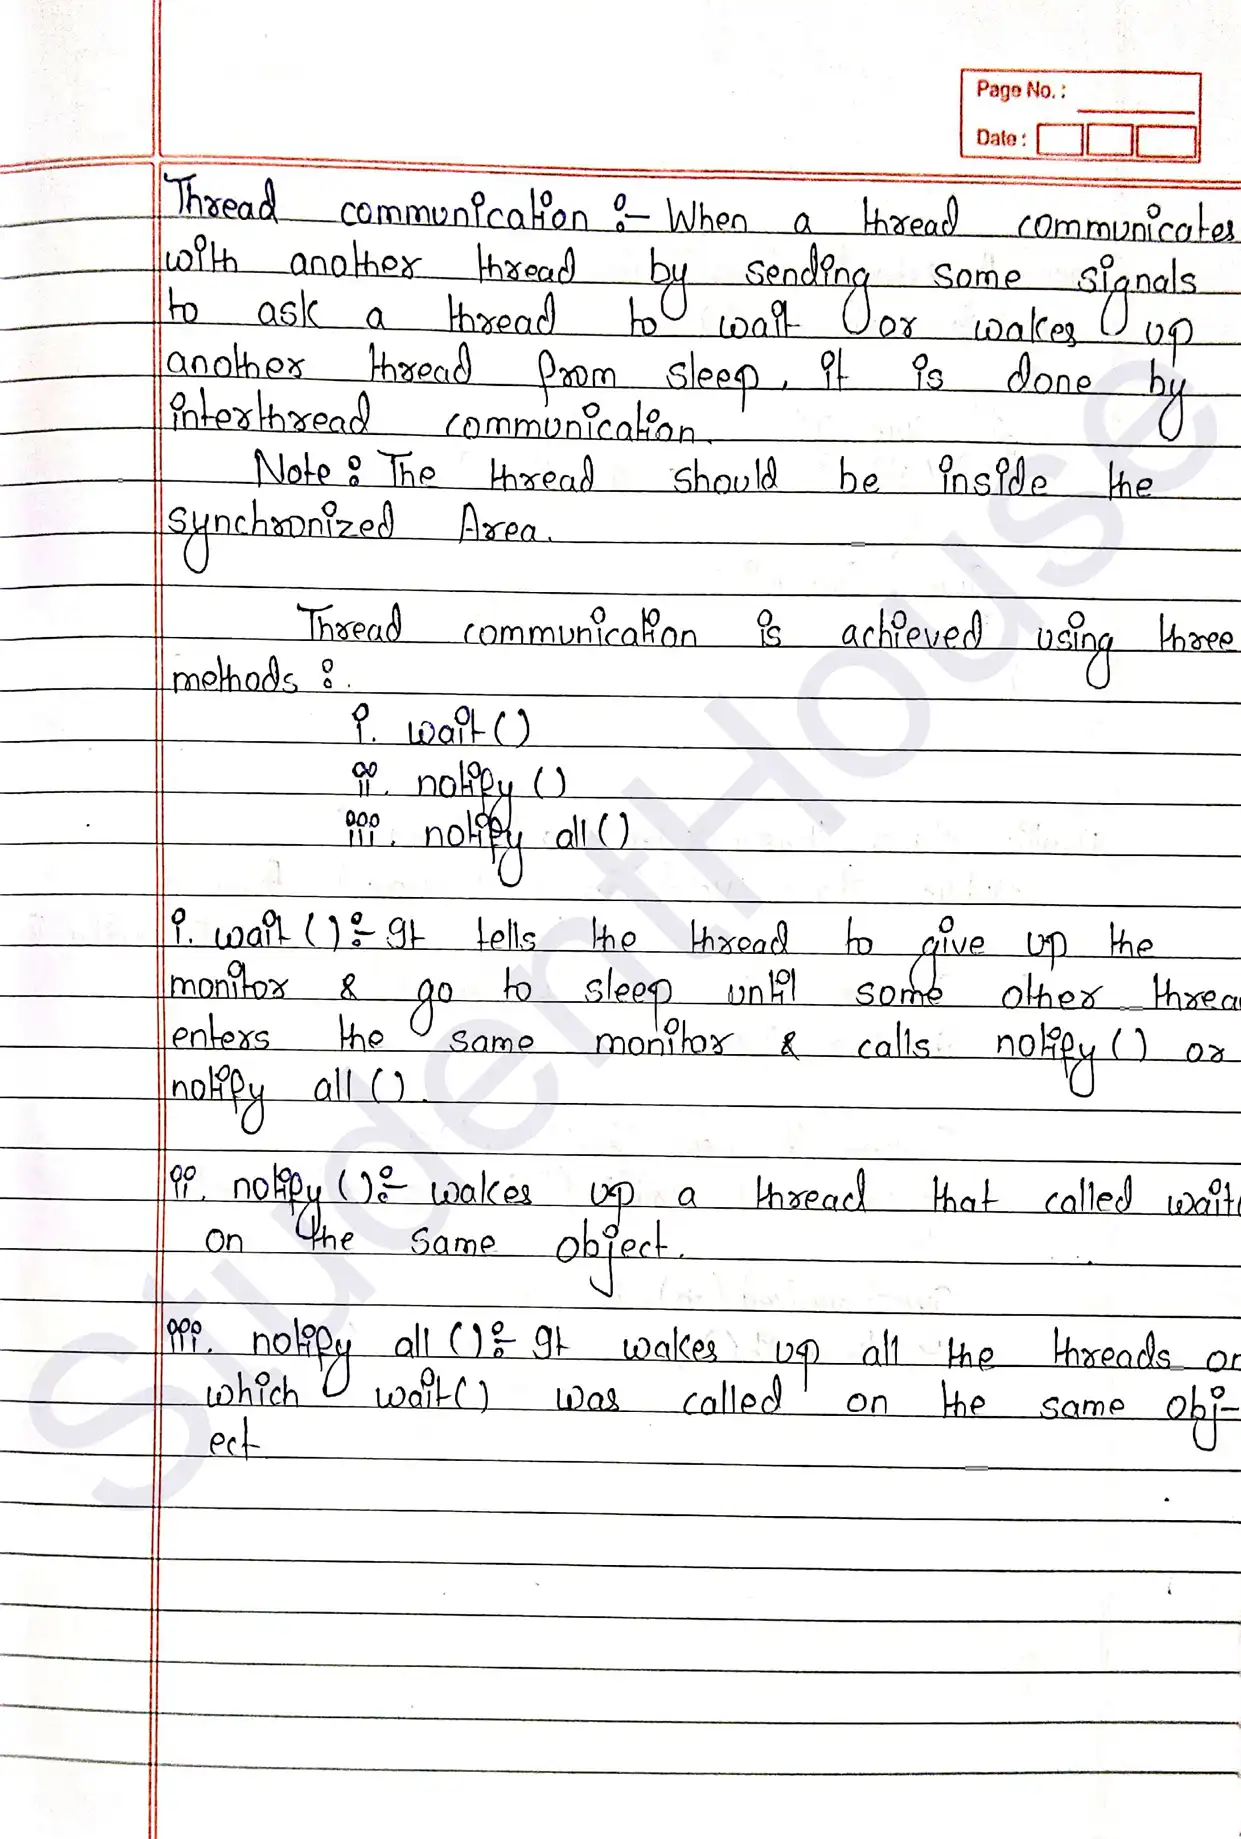 Page No. :
Date :
Thread communication :- When a thread communicates
with another thread by sending some signals
to ask a thread to wait or wakes up
another thread from sleep, it is done by
interthread communication.
Note : The thread should be inside the
synchronized Area.
Thread communication is achieved using three
methods :
i. wait ()
ii. notify ()
iii. notify all ()
i. wait () :- It tells the thread to give up the
monitor & go to sleep until some other threa
enters the same monitor & calls notify () or
notify all ().
ii. notify () :- wakes up a thread that called wait(
on the same object.
iii. notify all () :- It wakes up all the threads on
which wait() was called on the same obj-
ect
StudentHouse